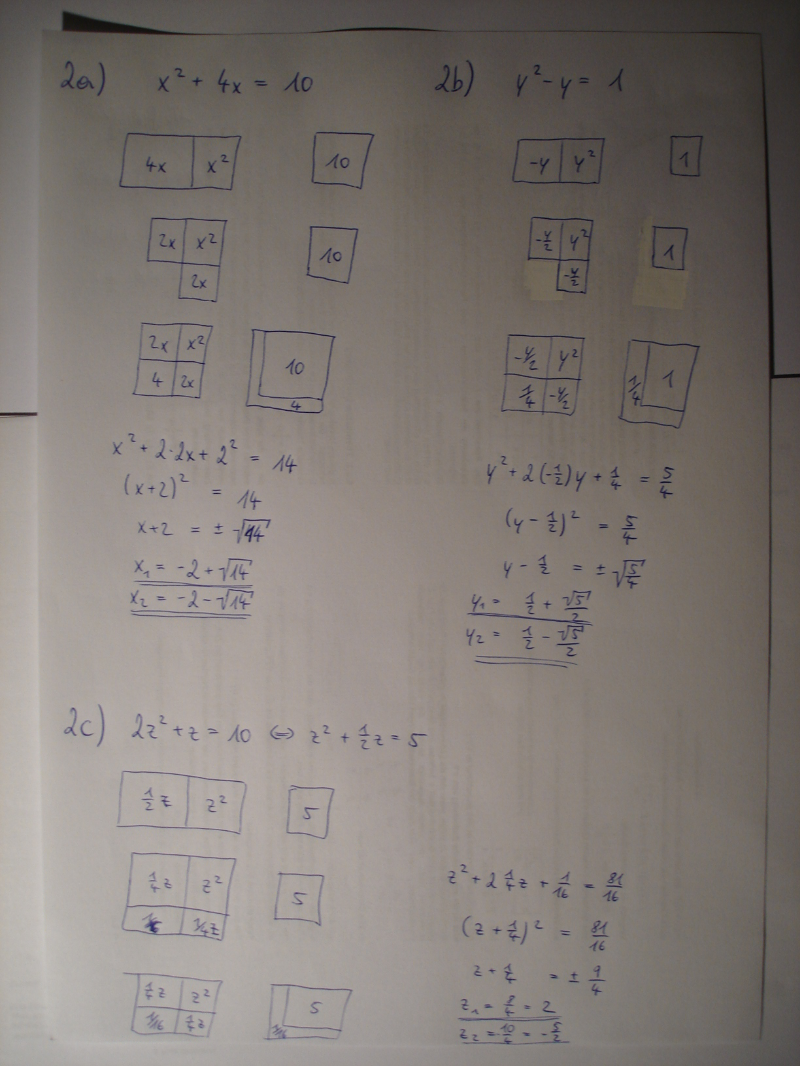 2a) x² + 4x = 10
4x x² 10
2x x² 10
2x
2x x² 10
4 2x 4
x² + 2·2x + 2² = 14
(x+2)² = 14
x+2 = ± √14
x₁ = -2 + √14
x₂ = -2 - √14
2b) y² - y = 1
-y y² 1
-y/2 y² 1
-y/2
-y/2 y² 1/4 1
1/4 -y/2
y² + 2(-1/2)y + 1/4 = 5/4
(y - 1/2)² = 5/4
y - 1/2 = ± √5/4
y₁ = 1/2 + √5/2
y₂ = 1/2 - √5/2
2c) 2z² + z = 10 ⇔ z² + 1/2z = 5
1/2 z z² 5
1/4 z z² 5
1/4z
1/4z z² 5
1/16 1/4z 1/16
z² + 2 1/4z + 1/16 = 81/16
(z + 1/4)² = 81/16
z + 1/4 = ± 9/4
z₁ = 8/4 = 2
z₂ = -10/4 = -5/2